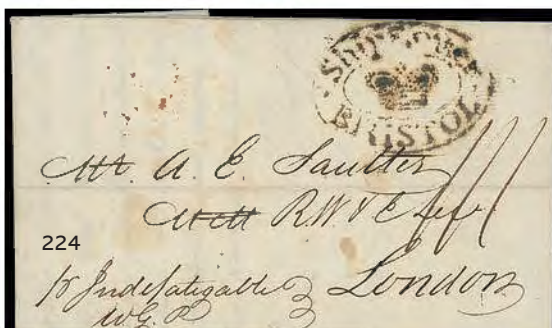 SHIP LETTER
BRISTOL
Mr. A. E. Saulter
R.W & E
224
London
pr Indefatigable
W.G.P